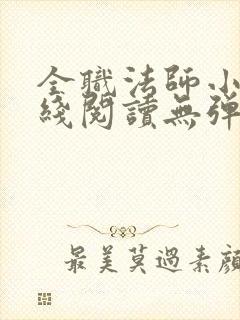 全職法師小
綫閱讀無彈
最美莫過素顔